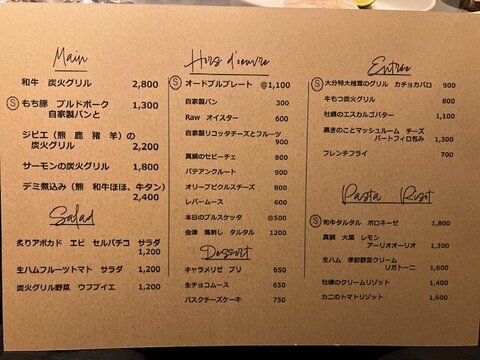 Main
和牛 炭火グリル 2,800
Ⓢもち豚 プルドポーク 1,300
自家製パンと
ジビエ（熊 鹿 猪 羊）の
炭火グリル 2,200
サーモンの炭火グリル 1,800
デミ煮込み（熊 和牛ほほ、牛タン）
2,400
Salad
炙りアボカド エビ セルバチコ サラダ
1,200
生ハムフルーツトマト サラダ 1,200
炭火グリル野菜 ウフブイエ 1,200
Hors d'oeuvre
Ⓢ オードブルプレート @1,100
自家製パン 300
Raw オイスター 600
自家製リコッタチーズとフルーツ
900
真鯛のセビーチェ 800
パテアンクルート 900
オリーブピクルスチーズ 800
レバームース 600
本日のブルスケッタ @500
会津 馬刺し タルタル 1200
Dessert
キャラメリゼ ブリ 650
生チョコムース 650
バスクチーズケーキ 750
Entrée
Ⓢ大分特大椎茸のグリル カチョカバロ 900
牛もつ炭火グリル 800
牡蠣のエスカルゴバター 1,100
黒きのことマッシュルーム チーズ
パートフィロ包み 1,300
フレンチフライ 700
Pasta Risot
Ⓢ和牛タルタル ボロネーゼ 1,800
真鯛 大葉 レモン
アーリオオーリオ 1,300
生ハム 季節野菜クリーム
リガトーニ 1,600
牡蠣のクリームリゾット 1,400
カニのトマトリゾット 1,600